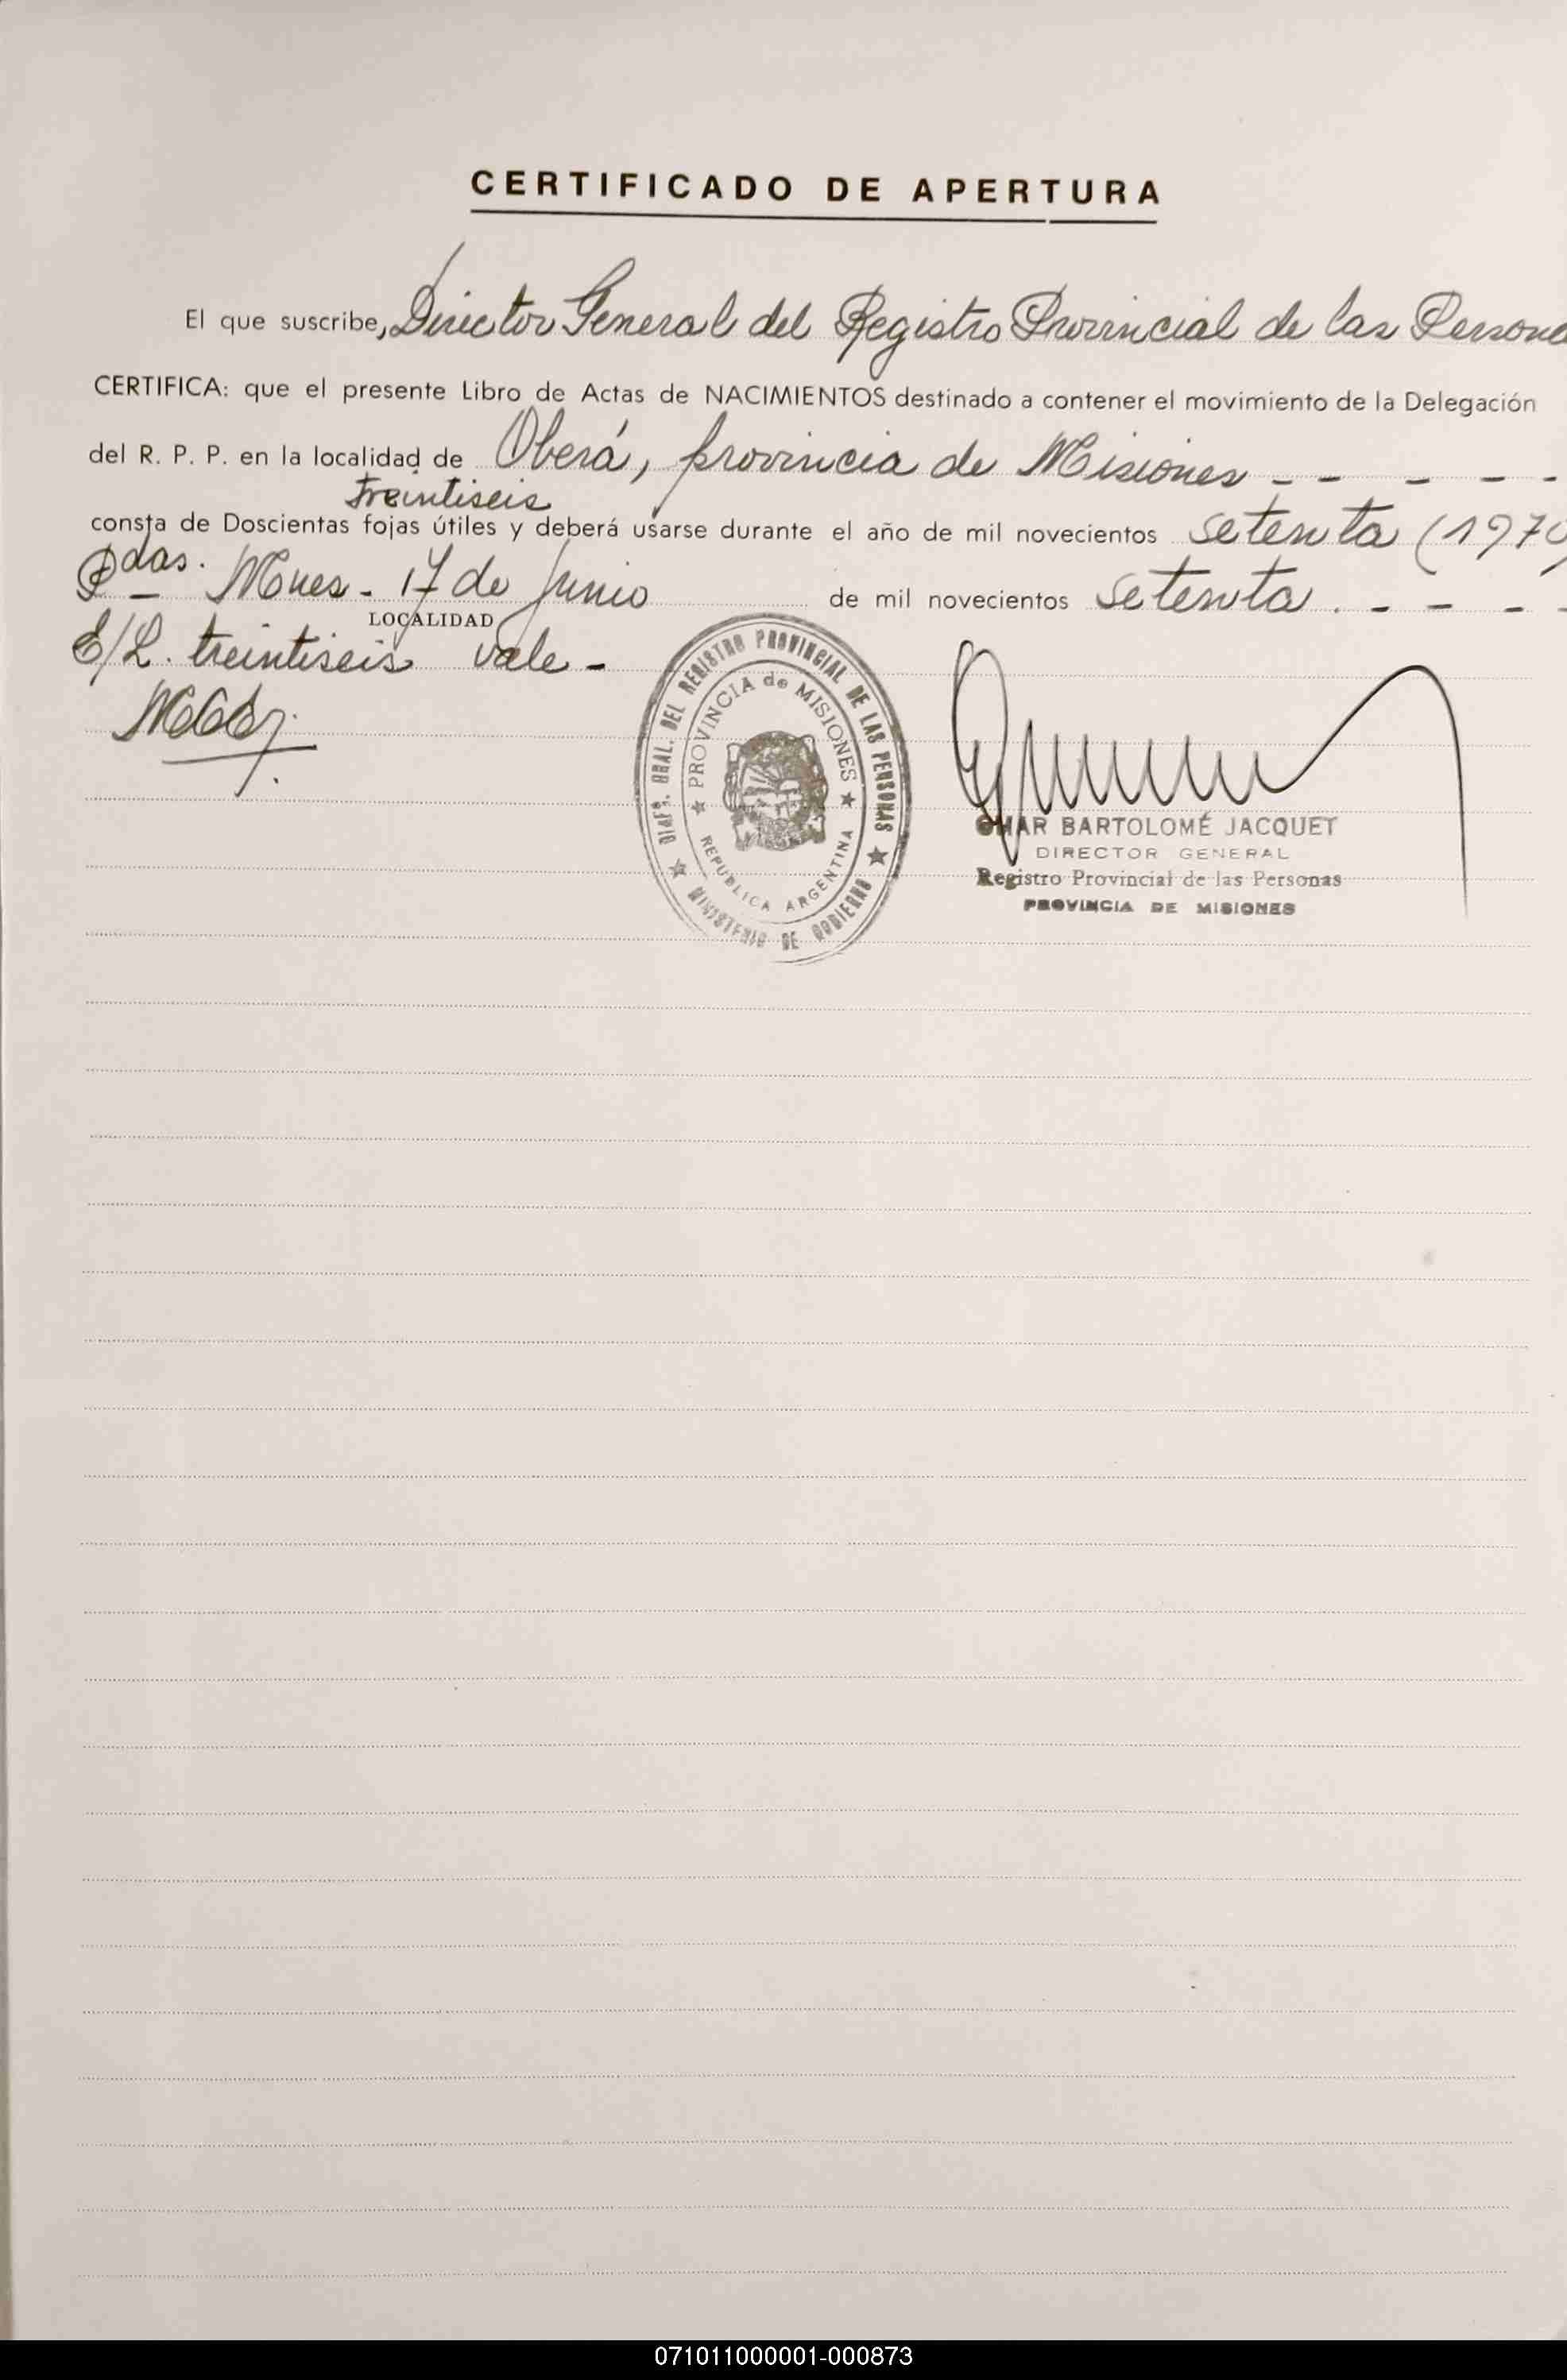 CERTIFICADO DE APERTURA
El que suscribe, Director General del Registro Provincial de las Persona
CERTIFICA: que el presente Libro de Actas de NACIMIENTOS destinado a contener el movimiento de la Delegación
del R. P. P. en la localidad de Oberá, provincia de Misiones - - - - -
treintiseis
consta de Doscientas fojas útiles y deberá usarse durante el año de mil novecientos setenta (1970
Pdas. - Mnes - 17 de Junio de mil novecientos setenta . - - - -
LOCALIDAD
E/L. treintiseis vale -
REGISTRO PROVINCIAL DE LAS PERSONAS
PROVINCIA de MISIONES
REPUBLICA ARGENTINA
MINISTERIO DE GOBIERNO
OMAR BARTOLOMÉ JACQUET
DIRECTOR GENERAL
Registro Provincial de las Personas
PROVINCIA DE MISIONES
071011000001-000873